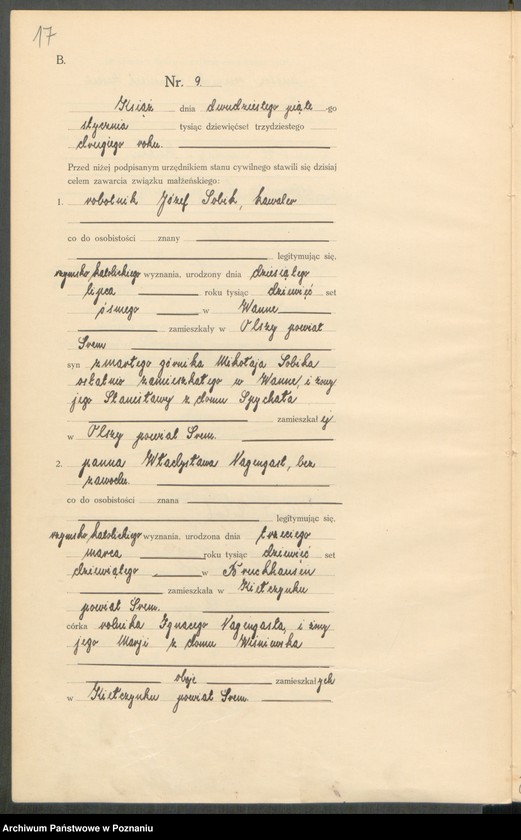 17
B.
Nr. 9.
Książ dnia dwudziestego piąte -go
stycznia tysiąc dziewięćset trzydziestego
drugiego roku.
Przed niżej podpisanym urzędnikiem stanu cywilnego stawili się dzisiaj
celem zawarcia związku małżeńskiego:
1. robotnik Józef Sobik, kawaler
co do osobistości znany
legitymując się,
rzymsko katolickiego wyznania, urodzony dnia dziesiątego
lipca roku tysiąc dziewięć set
ósmego w Wanne
zamieszkały w Olszy powiat
Śrem
syn zmarłego górnika Mikołaja Sobika
ostatnio zamieszkałego w Wanne, i żony
jego Stanisławy z domu Spychała
zamieszkał ej
w Olszy powiat Śrem.
2. panna Władysława Nagengast, bez
zawodu.
co do osobistości znana
legitymując się,
rzymsko katolickiego wyznania, urodzona dnia trzeciego
marca roku tysiąc dziewięć set
dziewiątego w Bruckhausen
zamieszkała w Kiełczynku
powiat Śrem.
córka rolnika Ignacego Nagengasta, i żony
jego Marji z domu Wiśniewska
oboje zamieszkał ych
w Kiełczynku powiat Śrem.
Archiwum Państwowe w Poznaniu